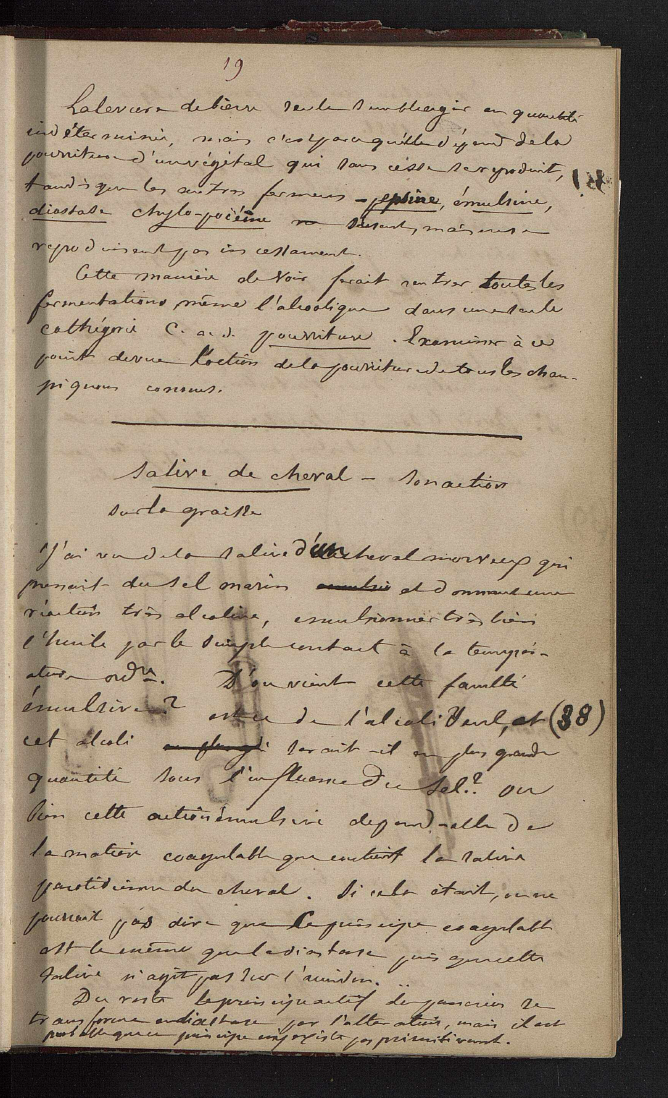 19
La levure de bierre seule semble agir en quantité
indéterminée, mais c'est parce qu'elle dépend de la
pourriture d'un végétal qui sans cesse se reproduit,
tandis que les autres fermens - pepsine, émulsine,
diastase chylo-poiéine se mais ne se
reproduisent pas incessament.
Cette manière de voir ferait rentrer toutes les
fermentations même l'alcoolique dans une seule
cathégorie C. a. d. pourriture. Examiner à ce
point de vue l'action de la pourriture et de tous les cham-
pignons connus.
Salive de cheval - son action
sur la graisse
J'ai vu de la salive d'un cheval morveux qui
prenait du sel marin et donnant une
réaction très alcaline, émulsionner très bien
l'huile par le simple contact à la tempér-
ature ordre. D'où vient cette faculté
émulsive? est-ce de l'alcali seul, et (38)
cet alcali serait-il en plus grande
quantité sous l'influence du sel? ou
bien cette action émulsive dépend-elle de
la matière coagulable que contient la salive
parotidienne du cheval. Si cela était, on ne
pourrait pas dire que le principe coagulable
est le même que la diastase puisque cette
salive n'agit pas sur l'amidon.
Du reste le principe actif du pancréas se
transforme en diastase par l'altération, mais il est
probable que ce principe n'y existe pas primitivement.